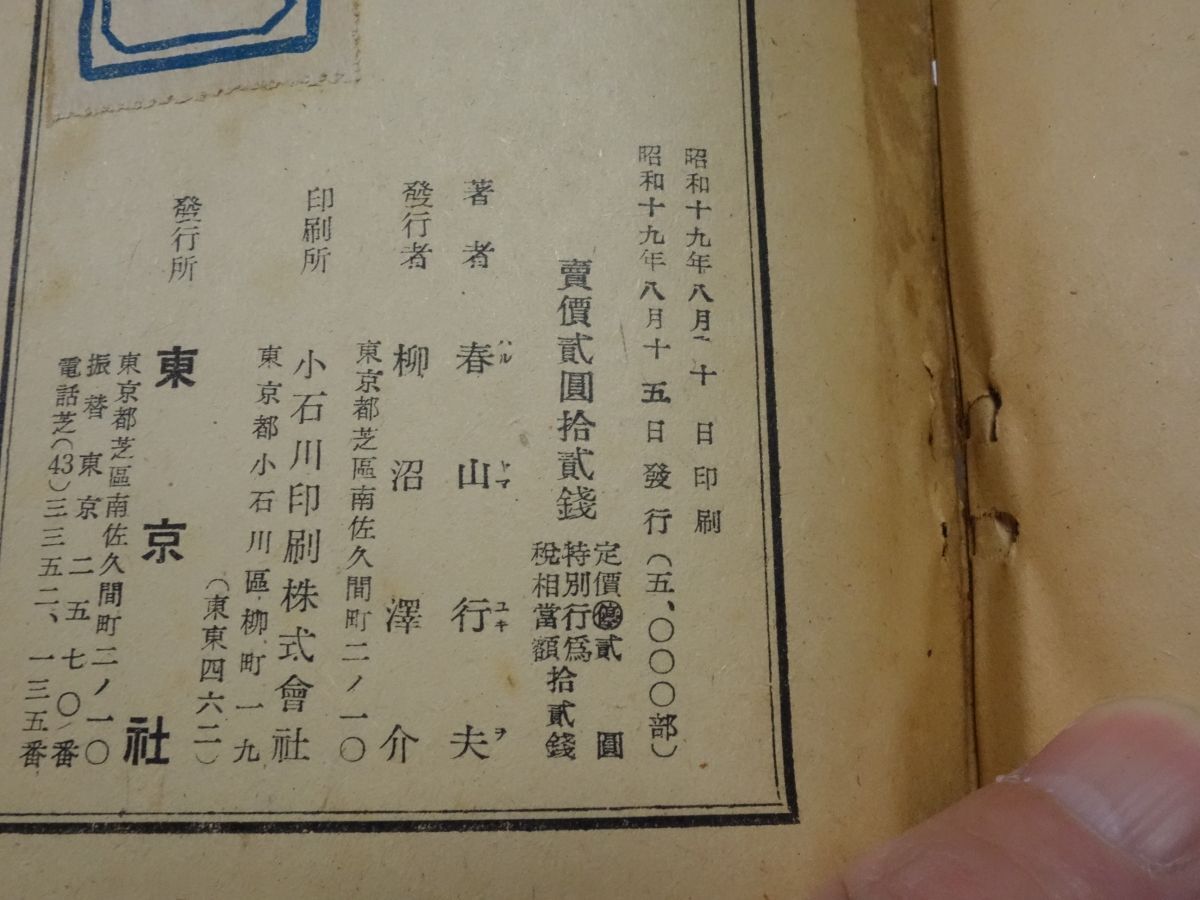 昭和十九年八月十日印刷
昭和十九年八月十五日發行(五、〇〇〇部)
賣價貳圓拾貳錢
定價停貳圓
特別行爲
稅相當額拾貳錢
著者 春山行夫
ハル ヤマ ユキ ヲ
發行者 柳沼澤介
東京都芝區南佐久間町二ノ一〇
印刷所 小石川印刷株式會社
東京都小石川區柳町一九
(東東四六二)
發行所 東京社
東京都芝區南佐久間町二ノ一〇
振替東京二五七〇番
電話芝(43)三三五二、一三五番